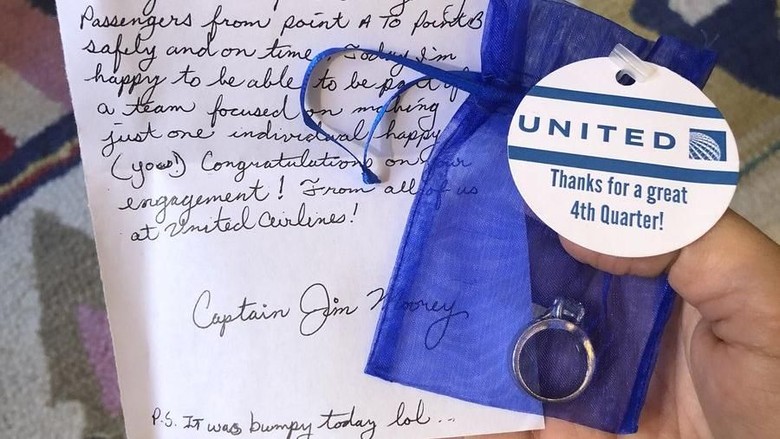 Passengers from point A to point B
safely and on time. Today I'm
happy to be able to be part of
a team focused on making
just one individual happy
(you!) Congratulations on your
engagement! From all of us
at United Airlines!
Captain Jim Moorey
P.S. It was bumpy today lol...
UNITED
Thanks for a great
4th Quarter!